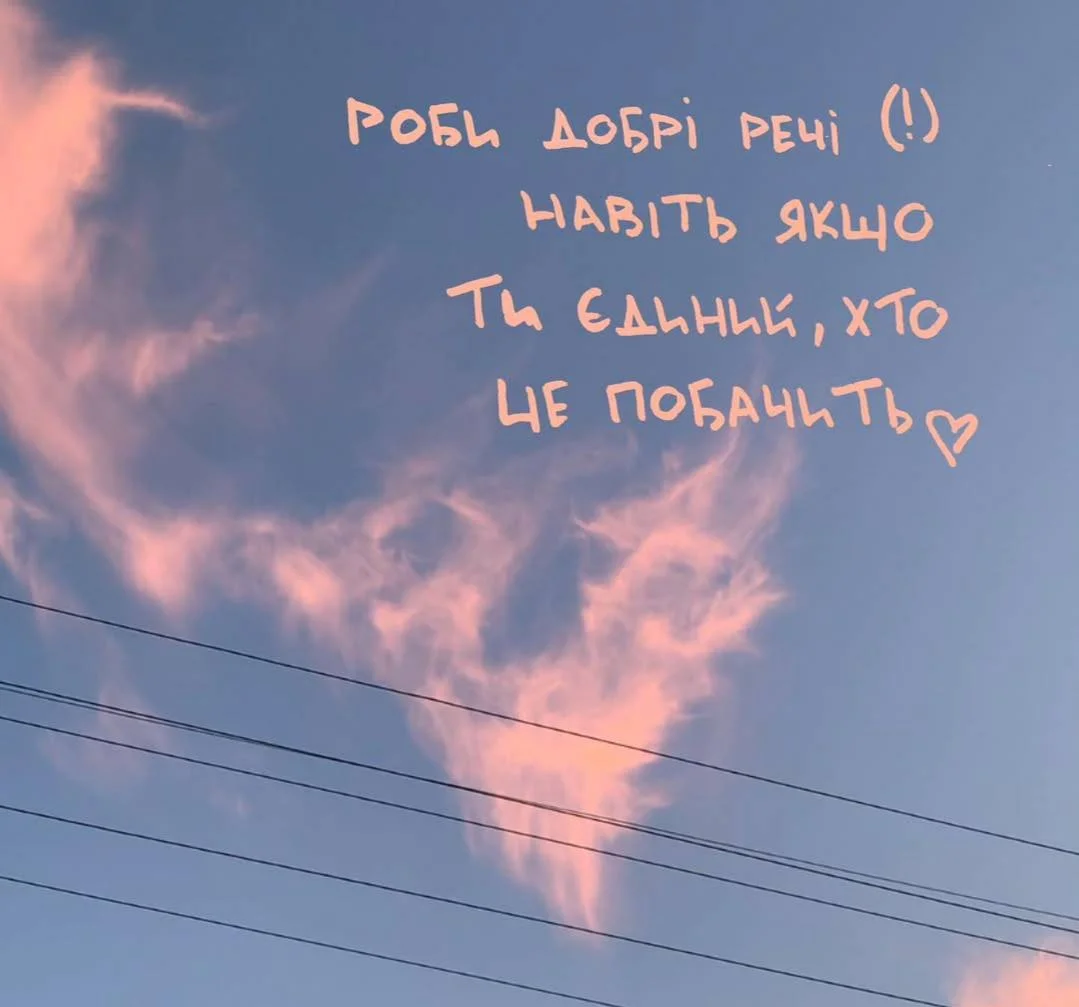 РОБИ ДОБРІ РЕЧІ (!)
НАВІТЬ ЯКЩО
ТИ ЄДИНИЙ, ХТО
ЦЕ ПОБАЧИТЬ♡